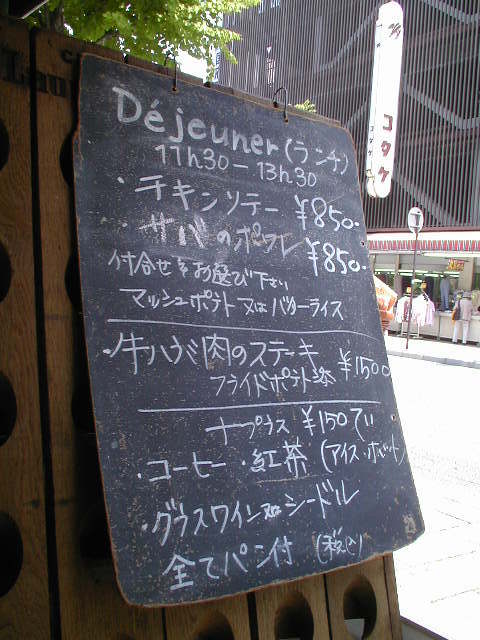 Déjeuner (ランチ)
11h30 - 13h30
・チキンソテー ¥850-
・サバのポワレ ¥850-
付合せをお選び下さい
マッシュポテト 又は バターライス
・牛ハラミ肉のステーキ ¥1500
フライドポテト添
+プラス ¥150で
・コーヒー・紅茶 (アイス・ホット)
・グラスワイン又はシードル
全てパン付 (税込)
コタケ
コタケ